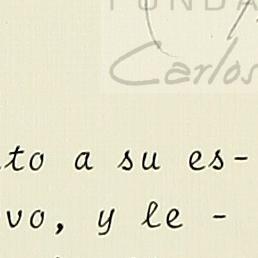 FUNDA
Carlos
to a su es-
vo, y le -